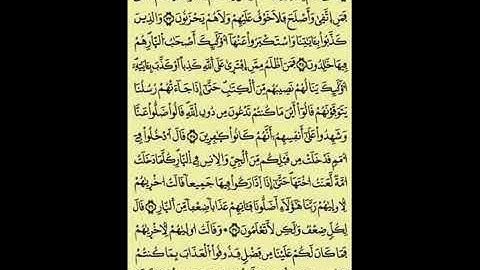 فَمَنِ اتَّقَىٰ وَأَصْلَحَ فَلَا خَوْفٌ عَلَيْهِمْ وَلَا هُمْ يَحْزَنُونَ وَالذِينَ
كَذَّبُوا بِـَٔايَٰتِنَا وَاسْتَكْبَرُوا عَنْهَا أُوْلَٰٓئِكَ أَصْحَٰبُ النَّارِ هُمْ
فِيهَا خَٰلِدُونَ فَمَنْ أَظْلَمُ مِمَّنِ افْتَرَىٰ عَلَى اللَّهِ كَذِبًا أَوْ كَذَّبَ بِـَٔايَٰتِهِ
أُوْلَٰٓئِكَ يَنَالُهُمْ نَصِيبُهُم مِّنَ الْكِتَٰبِ حَتَّىٰ إِذَا جَآءَتْهُمْ رُسُلُنَا
يَتَوَفَّوْنَهُمْ قَالُوا أَيْنَ مَا كُنتُمْ تَدْعُونَ مِن دُونِ اللَّهِ قَالُوا ضَلُّوا عَنَّا
وَشَهِدُوا عَلَىٰ أَنفُسِهِمْ أَنَّهُمْ كَانُوا كَٰفِرِينَ قَالَ ادْخُلُوا فِي
أُمَمٍ قَدْ خَلَتْ مِن قَبْلِكُم مِّنَ الْجِنِّ وَالْإِنسِ فِي النَّارِ كُلَّمَا دَخَلَتْ
أُمَّةٌ لَّعَنَتْ أُخْتَهَا حَتَّىٰ إِذَا ادَّارَكُوا فِيهَا جَمِيعًا قَالَتْ أُخْرَىٰهُمْ
لِأُولَىٰهُمْ رَبَّنَا هَٰٓؤُلَآءِ أَضَلُّونَا فَـَٔاتِهِمْ عَذَابًا ضِعْفًا مِّنَ النَّارِ قَالَ
لِكُلٍّ ضِعْفٌ وَلَٰكِن لَّا تَعْلَمُونَ وَقَالَتْ أُولَىٰهُمْ لِأُخْرَىٰهُمْ
فَمَا كَانَ لَكُمْ عَلَيْنَا مِن فَضْلٍ فَذُوقُوا الْعَذَابَ بِمَا كُنتُمْ